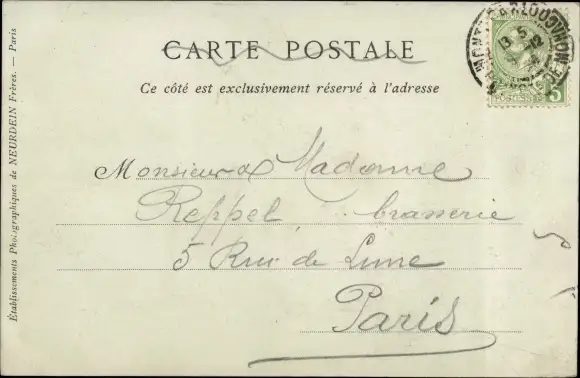 CARTE POSTALE
Ce côté est exclusivement réservé à l'adresse
Monsieur & Madame
Reppel, brasserie
5 Rue de Lune
Paris
Établissements Photographiques de NEURDEIN Frères. — Paris
5